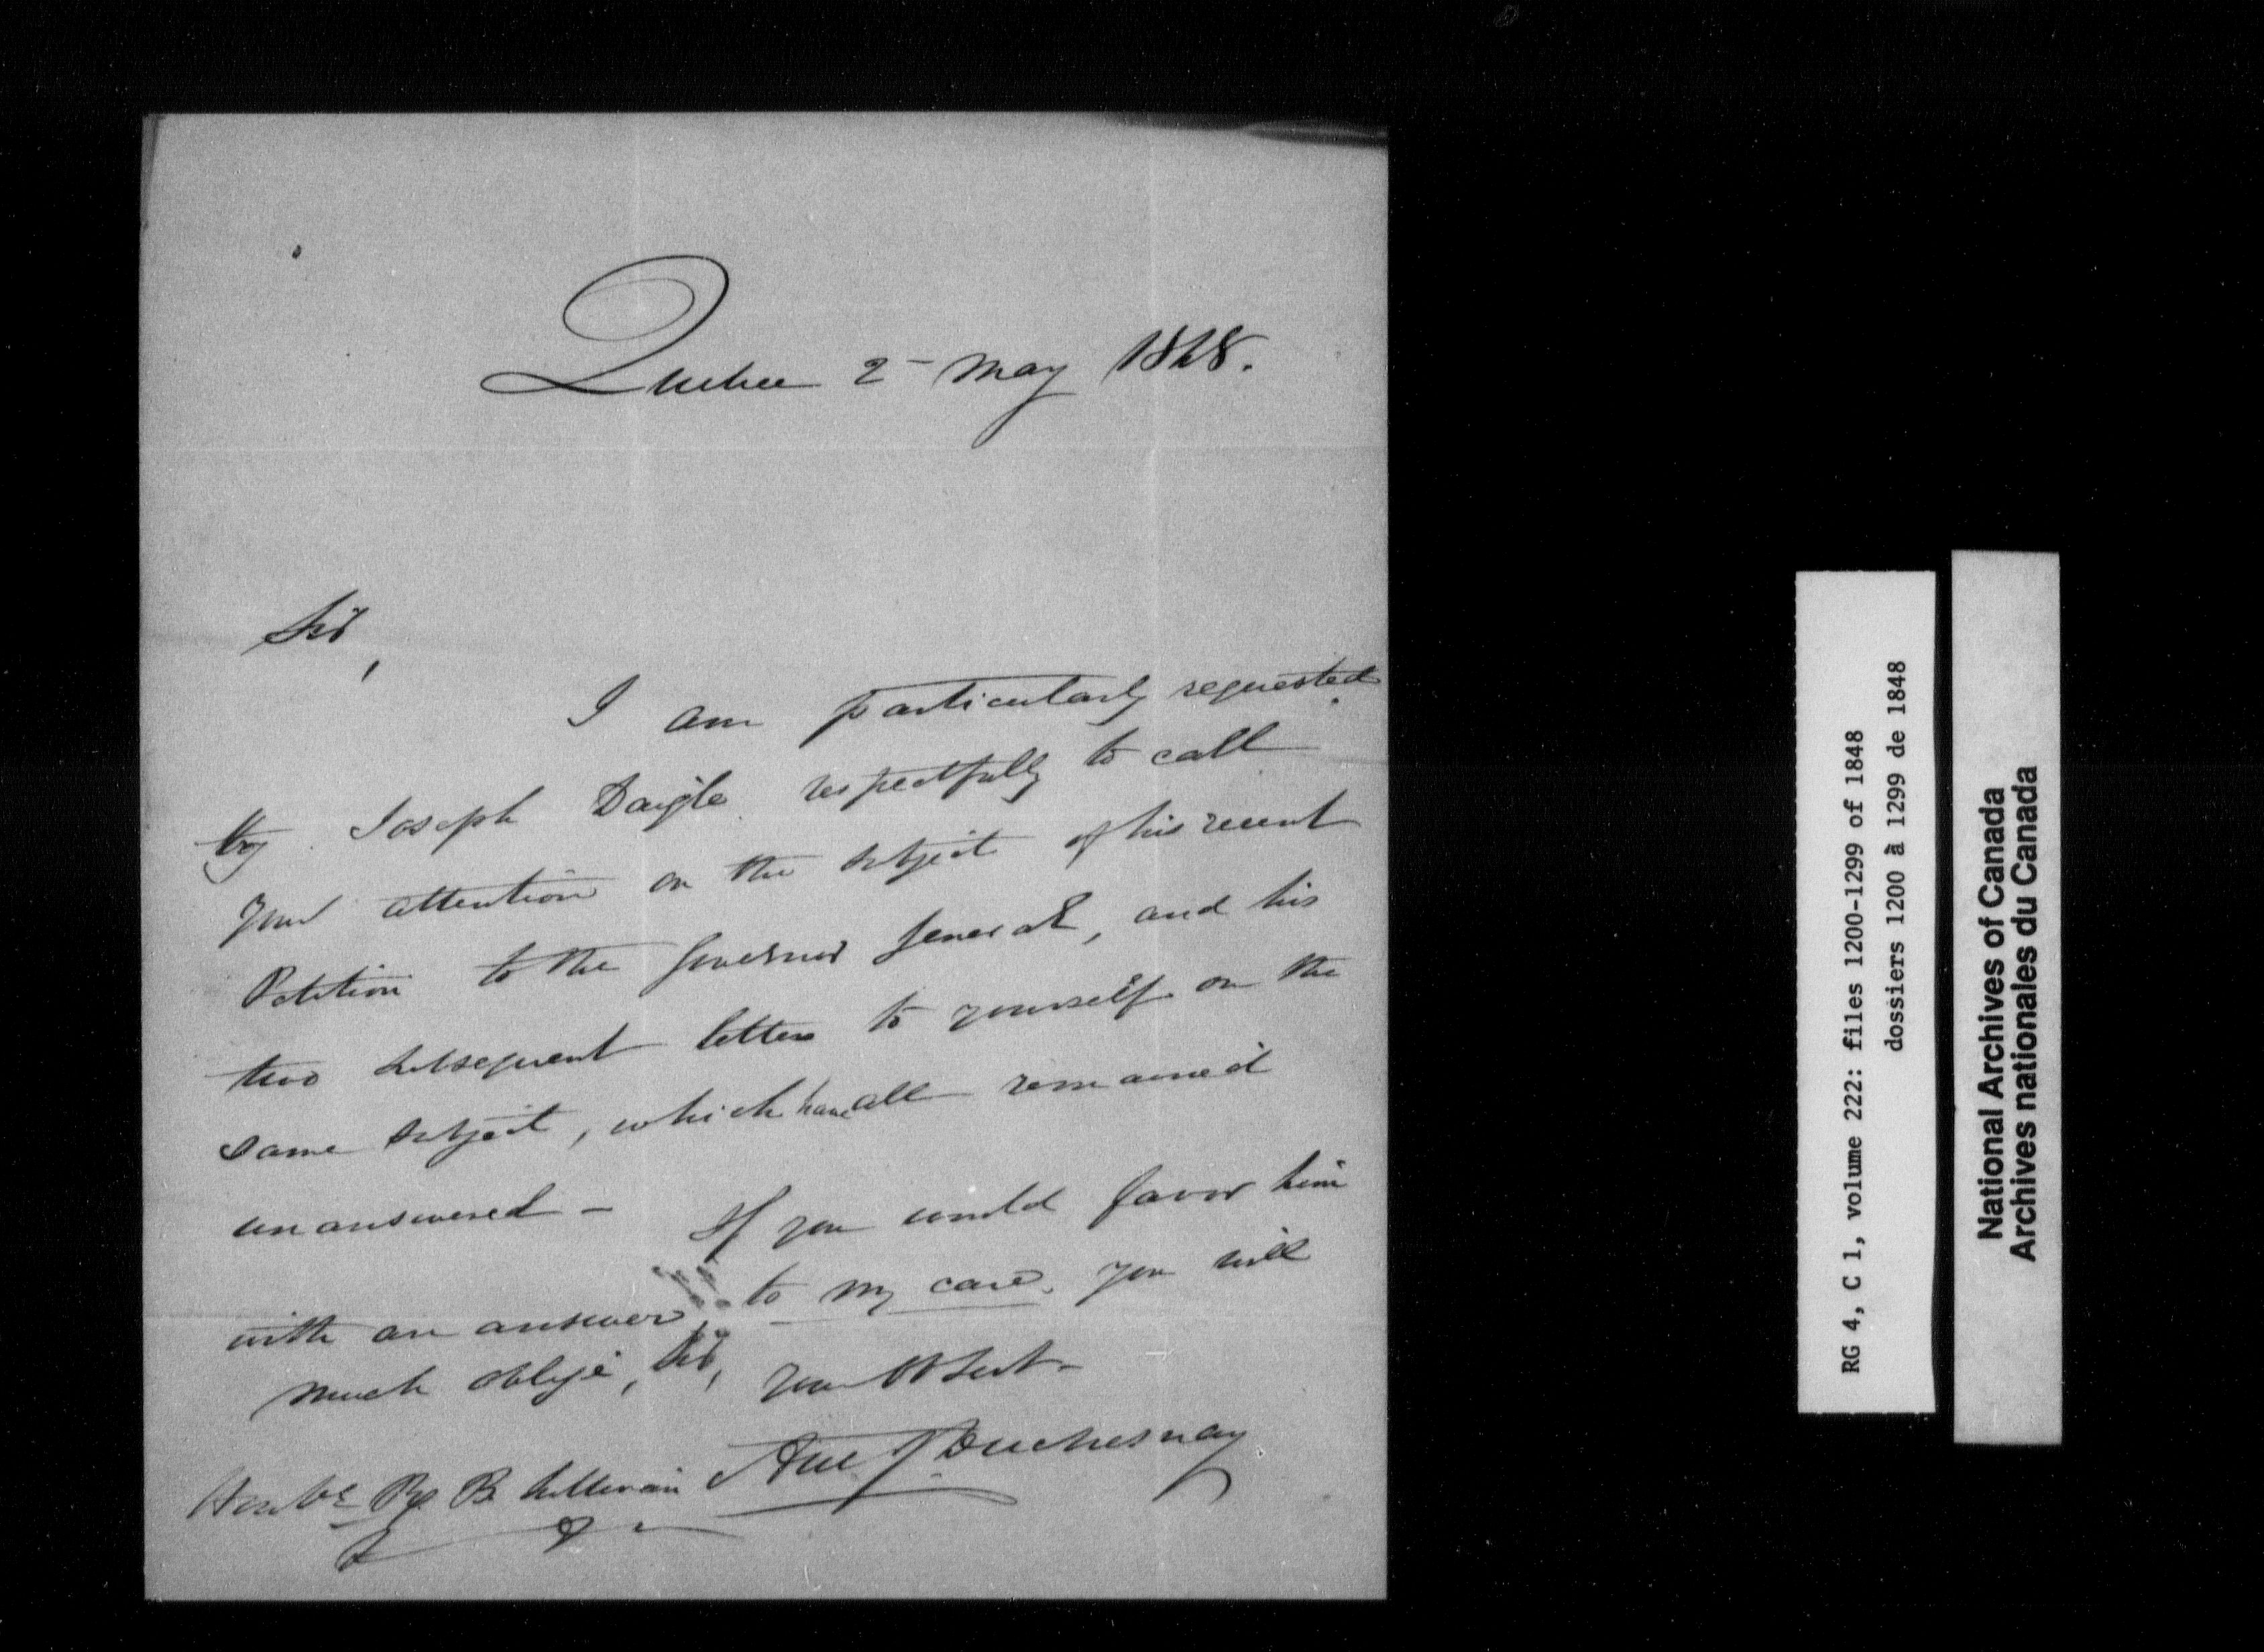 Quebec 2 - May 1848.
Sir,
I am particularly requested
by Joseph Daigle respectfully to call
your attention on the subject of his recent
Petition to the Governor General, and his
two subsequent letters to yourself on the
same subject, which have all remained
unanswered - If you would favor him
with an answer to my care, you will
much oblige, Sir, your Obt Servt -
Ant J Duchesnay
Honble R B Sullivan
RG 4, C 1, volume 222: files 1200-1299 of 1848
dossiers 1200 à 1299 de 1848
National Archives of Canada
Archives nationales du Canada